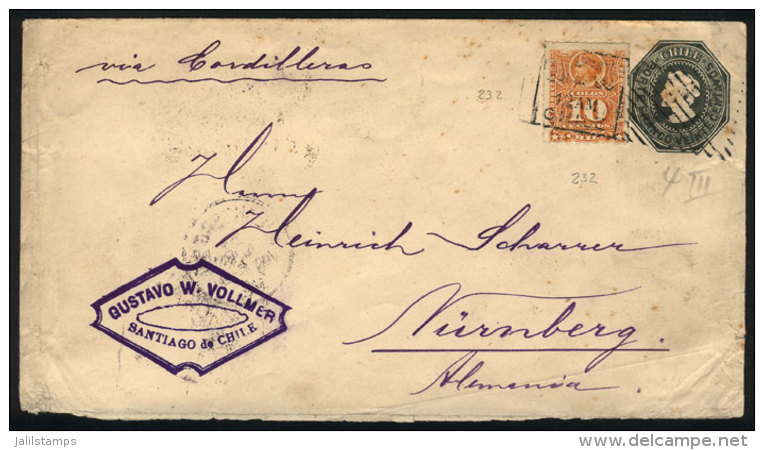 via Cordilleras
CHILE
COLON
10
232
232
4 III
Herrn
Heinrich Scharrer
GUSTAVO W. VOLLMER
SANTIAGO de CHILE
Nürnberg.
Alemania.
jalilstamps
delcampe.net